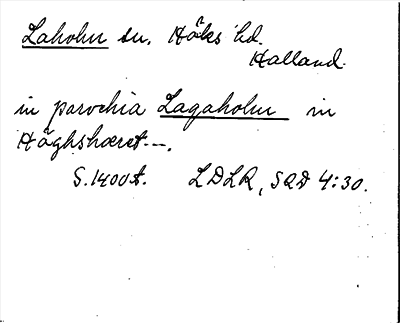 Laholm sn. Höks hd.
Halland.
in parochia Lagaholm in
Høghshæret---.
S.1400t. LDLR, SRD 4:30.